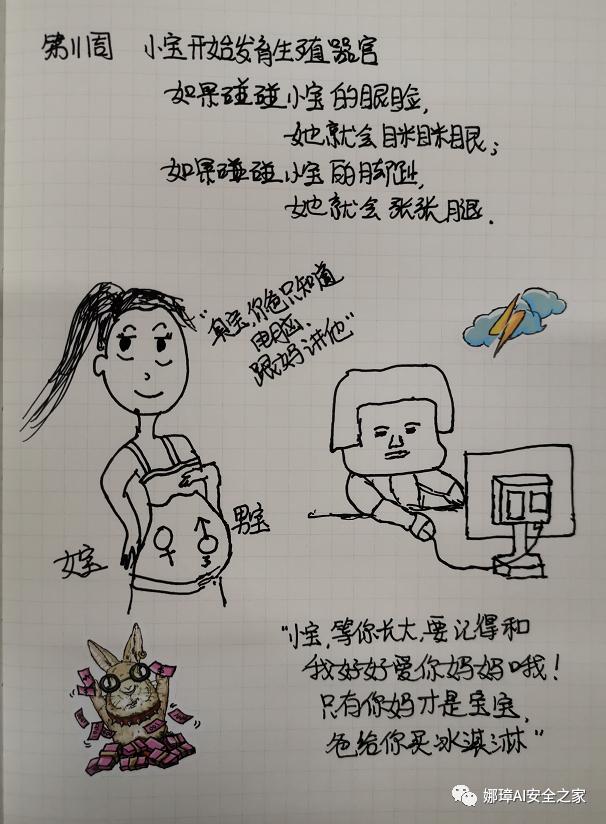 第11周 小宝开始发育生殖器官
如果碰碰小宝的眼睑,
她就会眯眯眼;
如果碰碰小宝的脚趾,
她就会张张腿.
"真宝你爸只知道
电脑.
跟妈讲他"
女宝
男宝
"小宝,等你长大,要记得和
我好好爱你妈妈哦!
只有你妈才是宝宝,
爸给你买冰淇淋"
娜璋AI安全之家